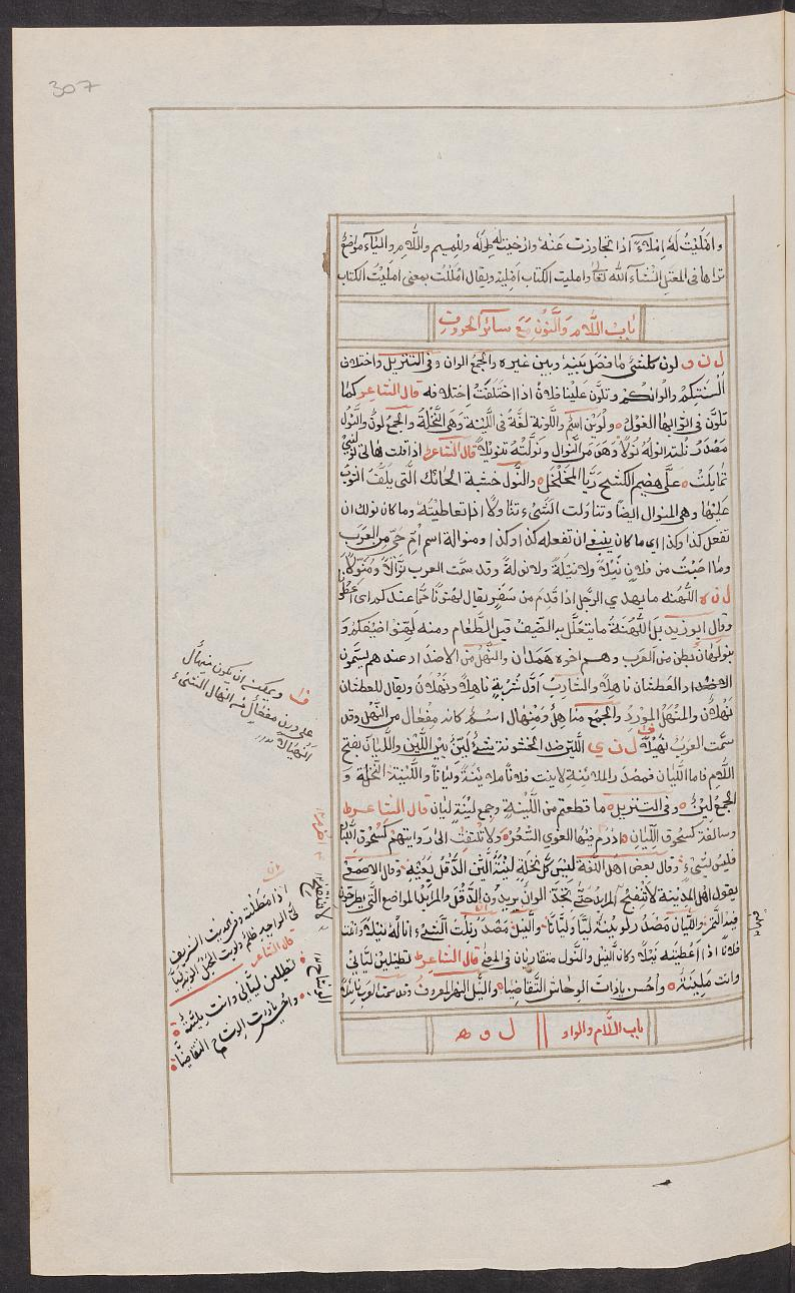 307
وامليت له إملاءً اذا تجاوزت عنه وارخيت له طوله وللميم واللام والياء مواضع
تراها في المعتل انشاء الله تعالى وامليت الكتاب امليه ويقال امللت بمعنى امليت الكتاب
باب اللام والنون مع سائر الحروف
ل ن و لون كلشئ ما فصل بينه وبين غيره والجمع الوان وفي التنزيل واختلاف
السنتكم والوانكم وتلوّن علينا فلان اذا اختلفت اخلاقه قال الشاعر كما
تلوّن في اثوابها الغول ولوين اسم واللونة لغة في اللينة وهي النخلة والجمع لون والنول
مصدر نلته انوله نولاً وهن من النوال ونولته تنويلاً قال الشاعر اذا قلت هاتي نوليني
تمايلت علي هضيم الكشح ريّا المخلخل والنول خشبة الحائك التي يلف الثوب
عليها وهي المنوال ايضا وتناولت الشئ تناولاً اذا تعاطيته وما كان نولك ان
تفعل كذا وكذا اي ما كان ينبغي ان تفعله كذا وكذا ومنوالة اسم ام حي من العرب
وما اصبت من فلان نيلاً ولا نيلة ولا نولة وقد سمت العرب نوّالاً ومنوّلاً
ل ن ه اللهنة ما يهدي الرجل اذا قدم من سفر يقال لهنونا مما عندكم اي اعطونا
وقال ابو زيد بل اللهنة ما يتعلل به الضيف قبل الطعام ومنه لهنوا ضيفكم و
بنو لهان بطن من العرب وهم اخوة همدان والنهل من الاضداد عندهم يسمون
العطشان ناهلاً والشارب اول شربة ناهلاً ونهلان ويقال للعطشان
نهلان والمنهل المورد والجمع مناهل ومنهال اسم كانه مفعال من النهل وقد
سمت العرب نهيلاً ل ن ي اللين ضد الخشونة شئ لين بين اللين والليان بفتح
اللام فاما الليان فمصدر الملاينة لاينت فلانا ملاينة وليانا واللينة النخلة و
الجمع لين وفي التنزيل ما قطعتم من اللينة وجمع لينة ليان قال الشاعر
وسالفة كسحوق الليان اضرم فيها الغوي السعر ولا تلتفت الى روايتهم كسحوق اللبان
فليس بشئ وقال بعض اهل اللغة ليس كل نخلة لينة اللين الدقل بعينه وقال الاصمعي
يقول اهل المدينة لا تنتفخ المرابد حتى تجد الالوان يريدون الدقل والمرابد المواضع التي يطرحون
فيه التمر والليان مصدر لويته ليا وليانا والنيل مصدر نلت الشئ اناله نيلا وانلت
فلانا اذا اعطيته نيلا وكان النيل والنول متقاربان في المعنى قال الشاعر تطيلين لياني
وانت مليئة واحسن ياذات الوشاح التقاضيا والنيل النهر المعروف وقد سمت العرب نائلة
باب اللام والواو ل و ه
ف ا ويمكن ان يكون منهال
على وزن مفعال من انهال الشئ
انهيالا
اذا مطلته وفي الحديث الشريف
لي الواجد ظلم ولويت الحبل الويه ليا
قال الشاعر
تطيلين لياني وانت مليئة
واحسن ياذات الوشاح التقاضيا
لا تنتفخ
الوشاح